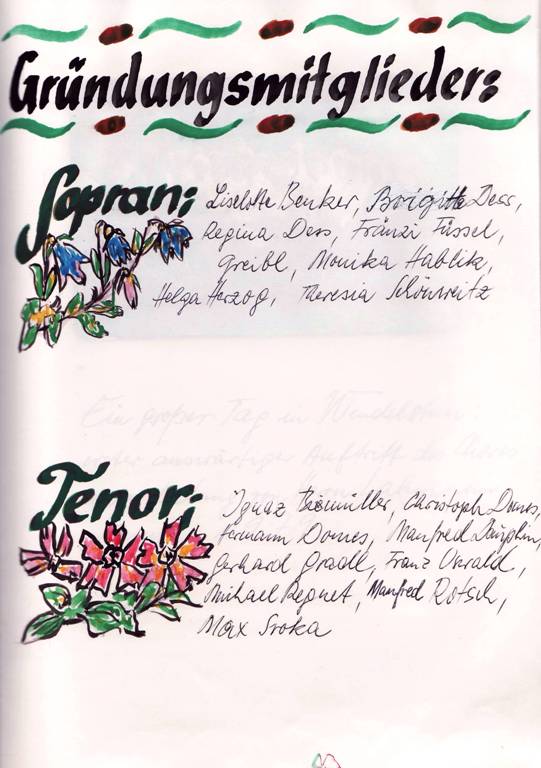 Gründungsmitglieder:
Sopran:
Liselotte Benker, Brigitte Dess,
Regina Dess, Fränzi Füssel,
Greibl, Monika Hablik,
Helga Herzog, Theresia Schönreitz
Ein großer Tag in Wendelstein:
erster auswärtiger Auftritt des Chores
Tenor:
Ignaz Christoph Domes,
Hermann Domes, Manfred
Gerhard Gradl, Franz
Michael Regnet, Manfred Rotsch,
Max Sroka